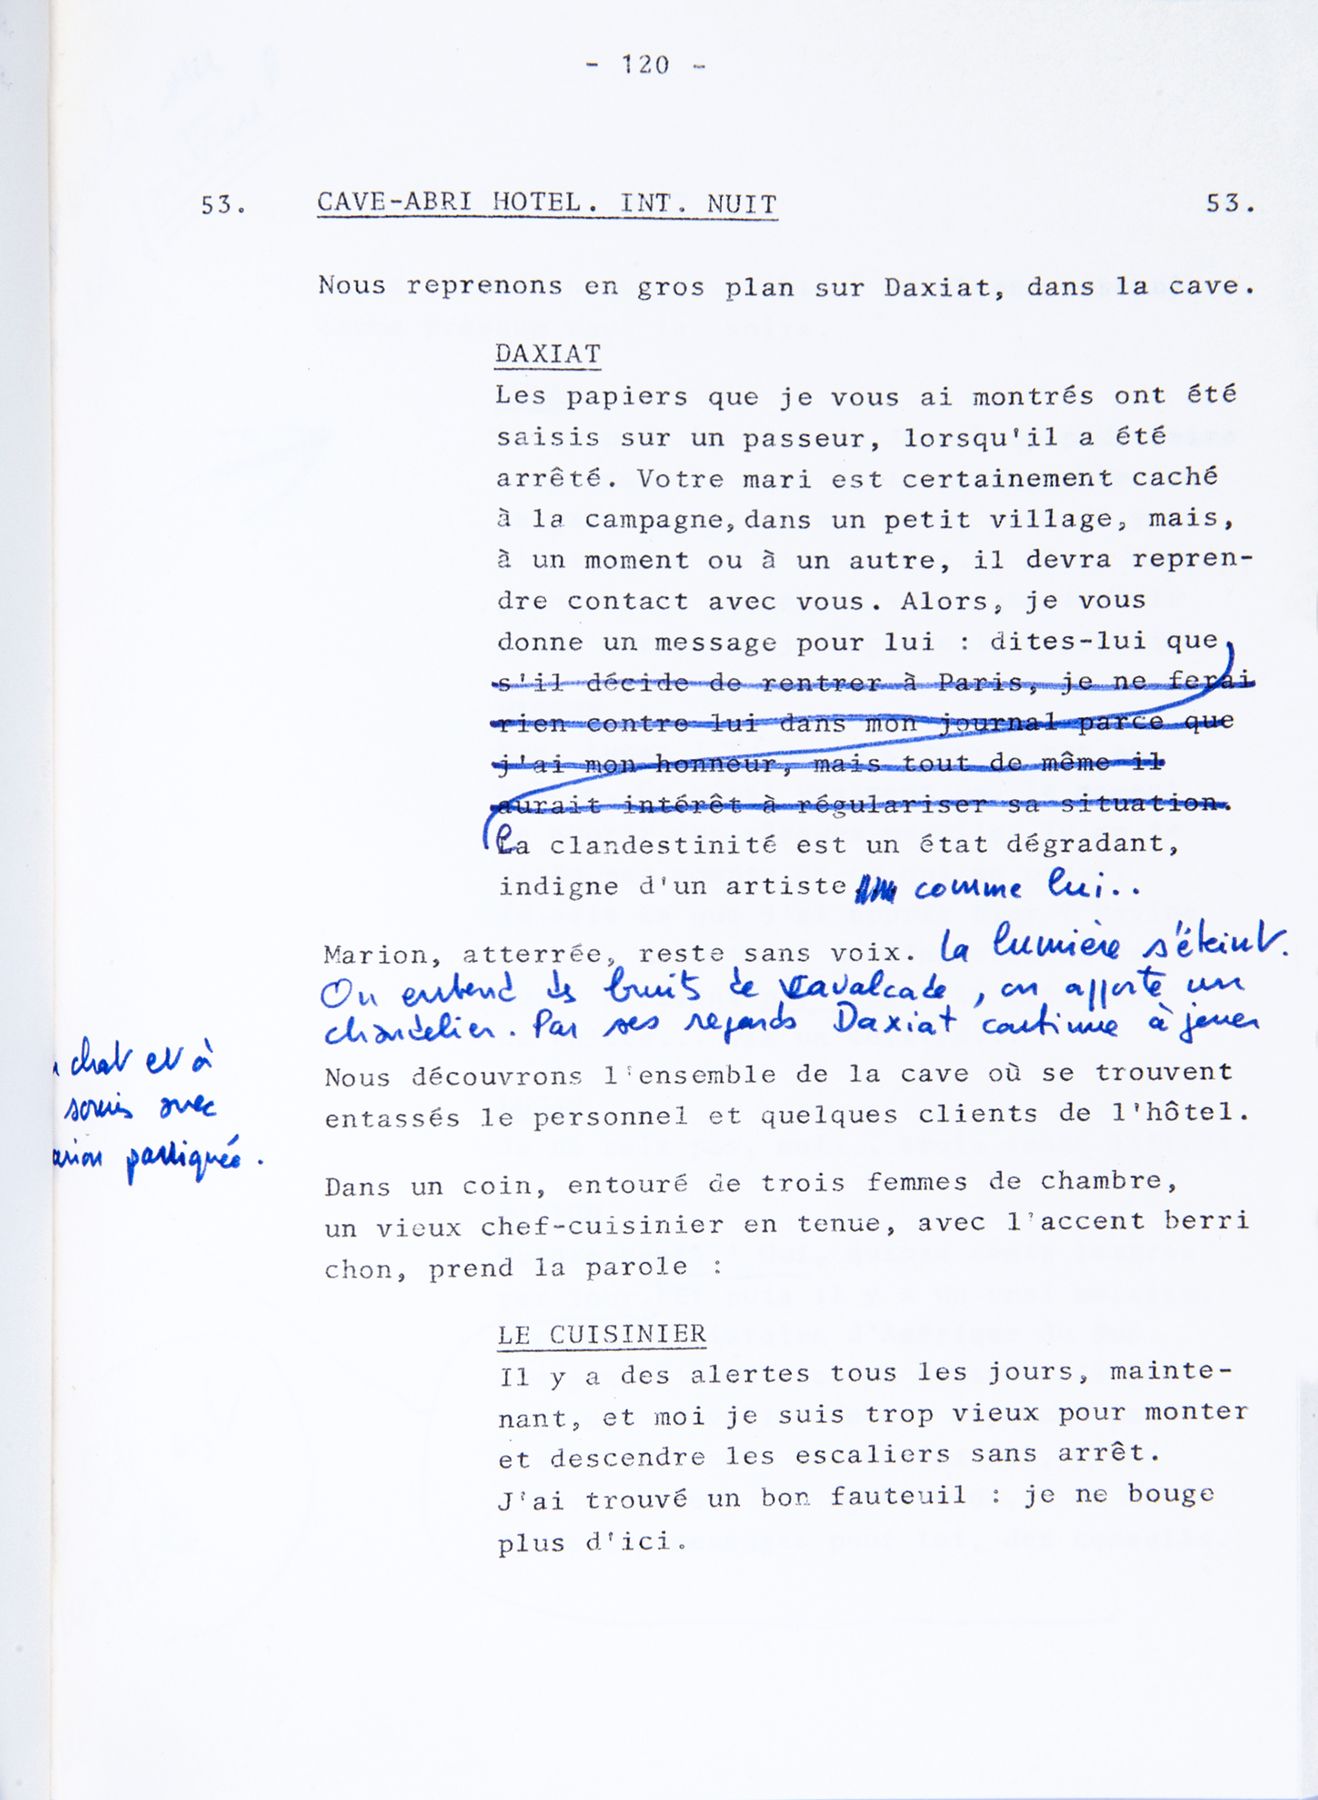 - 120 -
53. CAVE-ABRI HOTEL. INT. NUIT 53.
Nous reprenons en gros plan sur Daxiat, dans la cave.
DAXIAT
Les papiers que je vous ai montrés ont été
saisis sur un passeur, lorsqu'il a été
arrêté. Votre mari est certainement caché
à la campagne, dans un petit village, mais,
à un moment ou à un autre, il devra repren-
dre contact avec vous. Alors, je vous
donne un message pour lui : dites-lui que
s'il décide de rentrer à Paris, je ne ferai
rien contre lui dans mon journal parce que
j'ai mon honneur, mais tout de même il
aurait intérêt à régulariser sa situation.
la clandestinité est un état dégradant,
indigne d'un artiste comme lui..
Marion, atterrée, reste sans voix. La lumière s'éteint.
On entend des bruits de cavalcade, on apporte un
chandelier. Par ses regards Daxiat continue à jouer
chat et à
souris avec
paniquée.
Nous découvrons l'ensemble de la cave où se trouvent
entassés le personnel et quelques clients de l'hôtel.
Dans un coin, entouré de trois femmes de chambre,
un vieux chef-cuisinier en tenue, avec l'accent berri
chon, prend la parole :
LE CUISINIER
Il y a des alertes tous les jours, mainte-
nant, et moi je suis trop vieux pour monter
et descendre les escaliers sans arrêt.
J'ai trouvé un bon fauteuil : je ne bouge
plus d'ici.